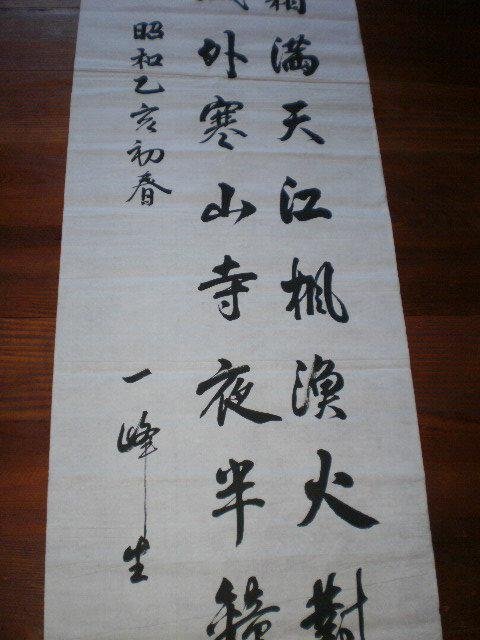 霜滿天江楓漁火對
城外寒山寺夜半鐘
昭和乙亥初春
一峰生